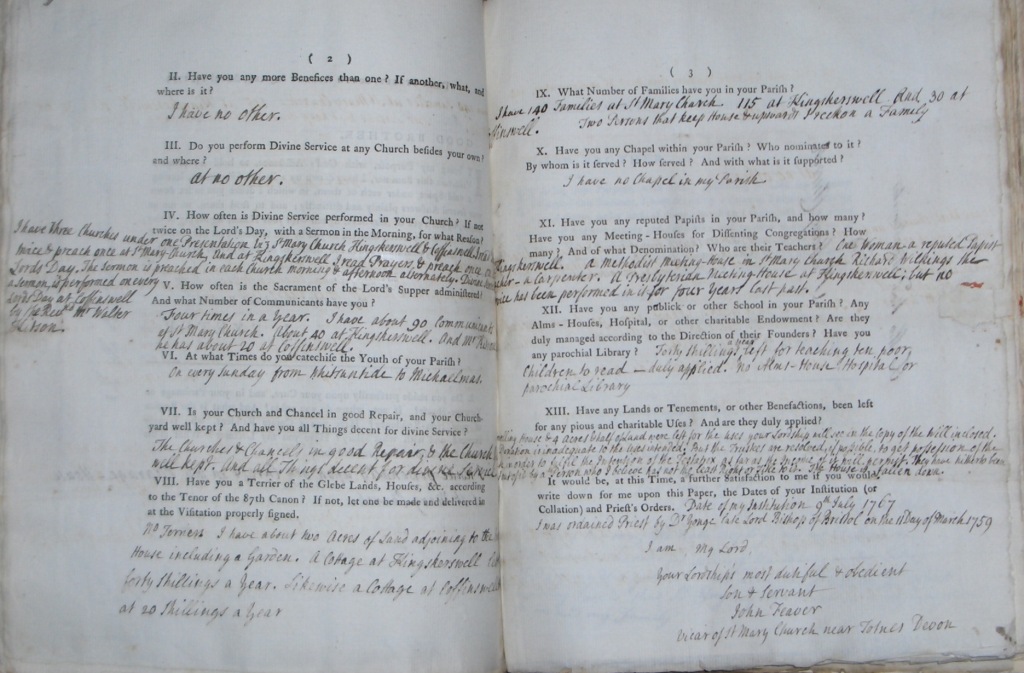 ( 2 )
II. Have you any more Benefices than one? If another, what, and
where is it?
I have no other.
III. Do you perform Divine Service at any Church besides your own?
and where?
at no other.
IV. How often is Divine Service performed in your Church? If not
twice on the Lord's Day, with a Sermon in the Morning, for what Reason?
I have three Churches under one Presentation viz St Mary Church Kingskerswell & Coffinswell
twice & preach once at St Mary Church, and at Kingskerswell I read Prayers & preach once on
Lords Day. The Sermon is preached in each Church morning & afternoon alternately. Divine
a Sermon, is performed on every
Lords Day at Coffinswell
by the Revd Mr Walter
V. How often is the Sacrament of the Lord's Supper administered?
And what Number of Communicants have you?
Four times in a Year. I have about 90 Communicants
of St Mary Church. About 40 at Kingskerswell. And Mr
he has about 20 at Coffinswell.
VI. At what Times do you catechise the Youth of your Parish?
On every Sunday from Whitsuntide to Michaelmas.
VII. Is your Church and Chancel in good Repair, and your Church-
yard well kept? And have you all Things decent for divine Service?
The Churches & Chancels in good Repair, & the Church
well kept. And all Things decent for divine Service
VIII. Have you a Terrier of the Glebe Lands, Houses, &c. according
to the Tenor of the 87th Canon? If not, let one be made and delivered in
at the Visitation properly signed.
No Terrier. I have about two Acres of Land adjoining to the
House including a Garden. A Cottage at Kingskerswell
forty Shillings a Year. Likewise a Cottage at Coffinswell
at 20 Shillings a Year
( 3 )
IX. What Number of Families have you in your Parish?
I have 140 Families at St Mary Church. 115 at Kingskerswell And 30 at
Two Persons that keep House & upwards I reckon a Family
X. Have you any Chapel within your Parish? Who nominates to it?
By whom is it served? How served? And with what is it supported?
I have no Chapel in my Parish
XI. Have you any reputed Papists in your Parish, and how many?
Have you any Meeting-Houses for Dissenting Congregations? How
many? And of what Denomination? Who are their Teachers? One Woman a reputed Papist
Kingskerswell. A Methodist meeting-House in St Mary Church Richard the
a Carpenter. A Presbyterian Meeting-House at Kingskerswell; but no
has been performed in it for four Years last past.
XII. Have you any publick or other School in your Parish? Any
Alms-Houses, Hospital, or other charitable Endowment? Are they
duly managed according to the Direction of their Founders? Have you
any parochial Library? Forty Shillings a year left for teaching ten poor
Children to read — duly applied. No Alms-House Hospital or
parochial Library
XIII. Have any Lands or Tenements, or other Benefactions, been left
for any pious and charitable Uses? And are they duly applied?
House & 4 Acres & half of Land were left for the uses your Lordship will see in the Copy of the Will inclosed.
is inadequate to the uses intended. But the Trustees are resolved, if possible, to get possession of the
in order to fulfil the Intention of the Testator as far as the Income will permit. They have hitherto been
by a Person who I believe has not the least Right or Title to it. The House is fallen down.
It would be, at this Time, a further Satisfaction to me if you would
write down for me upon this Paper, the Dates of your Institution (or
Collation) and Priest's Orders. Date of my Institution 9th July 1767
I was ordained Priest by Dr Yonge late Lord Bishop of Bristol on the 11 Day of March 1759
I am, My Lord,
Your Lordships most dutiful & obedient
Son & Servant
John Feaver
Vicar of St Mary Church near Totnes Devon